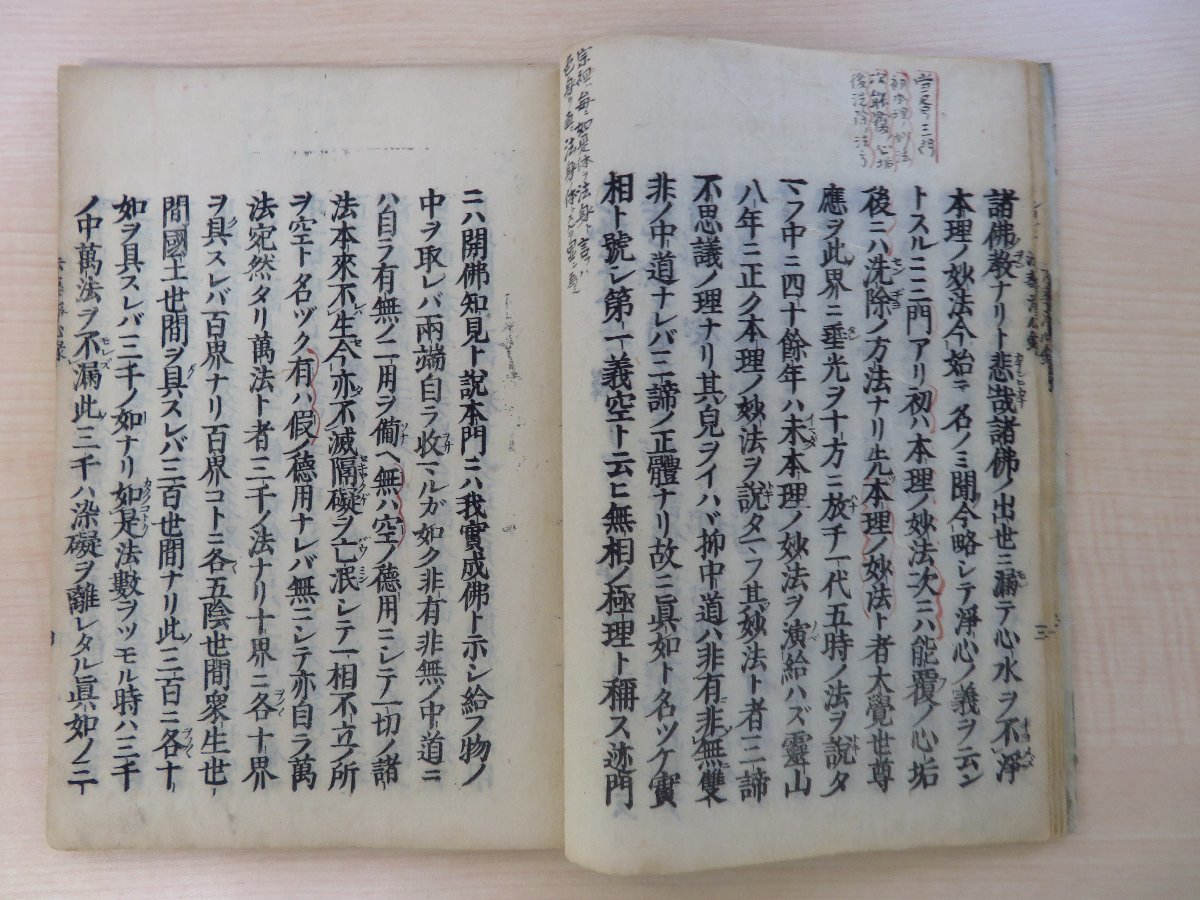 諸佛教ナリト悲哉諸佛ノ出世ニ漏テ心水ヲ不淨
本理ノ妙法今始ニ名ノミ聞今略シテ淨心ノ義ヲ云ン
トスルニ三門アリ初ハ本理ノ妙法次ニハ能覆ノ心垢
後ニハ洗除ノ方法ナリ先本理ノ妙法ト者大覺世尊
應ヲ此界ニ垂光ヲ十方ニ放チ一代五時ノ法ヲ說タ
マフ中ニ四十餘年ハ未本理ノ妙法ヲ演給ハズ靈山
八年ニ正ク本理ノ妙法ヲ說タマフ其妙法ト者三諦
不思議ノ理ナリ其皃ヲイハヾ抑中道ハ非有非無雙
非ノ中道ナレバ三諦ノ正體ナリ故ニ眞如ト名ツケ實
相ト號シ第一義空ト云ヒ無相ノ極理ト稱ス迹門
ニハ開佛知見ト說本門ニハ我實成佛ト示シ給フ物ノ
中ヲ取レバ兩端自ラ收マルガ如ク非有非無ノ中道ニ
ハ自ラ有無ノ二用ヲ備ヘ無ハ空ノ德用ニシテ一切ノ諸
法本來不生今亦不滅隔礙ヲ亡泯シテ一相不立ノ所
ヲ空ト名ヅク有ハ假ノ德用ナレバ無ニシテ亦自ラ萬
法宛然タリ萬法ト者三千ノ法ナリ十界ニ各十界
ヲ具スレバ百界ナリ百界コトニ各五陰世間衆生世
間國土世間ヲ具スレバ三百世間ナリ此三百ニ各十
如ヲ具スレバ三千ノ如ナリ如是法數ヲツモル時ハ三千
ノ中萬法ヲ不漏此三千ハ染礙ヲ離レタル眞如ノ三千